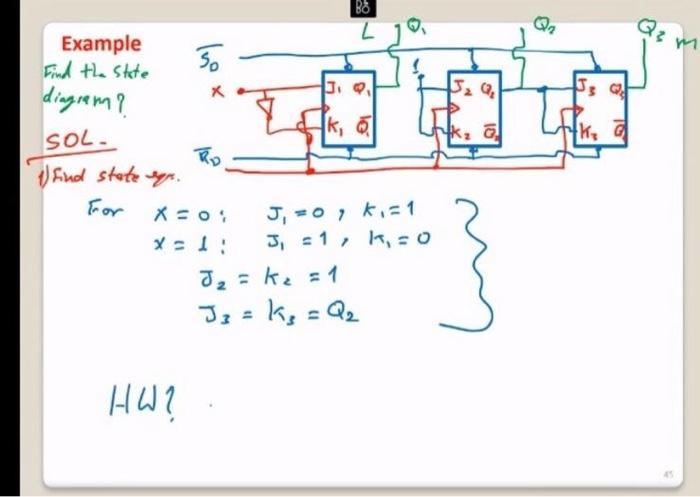 Example
Find the state
diagram?
SOL.
1) Find state eqn.
S̅D
X
R̅D
L Q₁ Q₂ Q₃ m
1
J₁ Q₁ J₂ Q₂ J₃ Q₃
K₁ Q̅₁ K₂ Q̅₂ K₃ Q̅
For X = 0 : J₁ = 0 , K₁ = 1
X = 1 : J₁ = 1 , K₁ = 0
J₂ = K₂ = 1
J₃ = K₃ = Q₂
HW? .
45